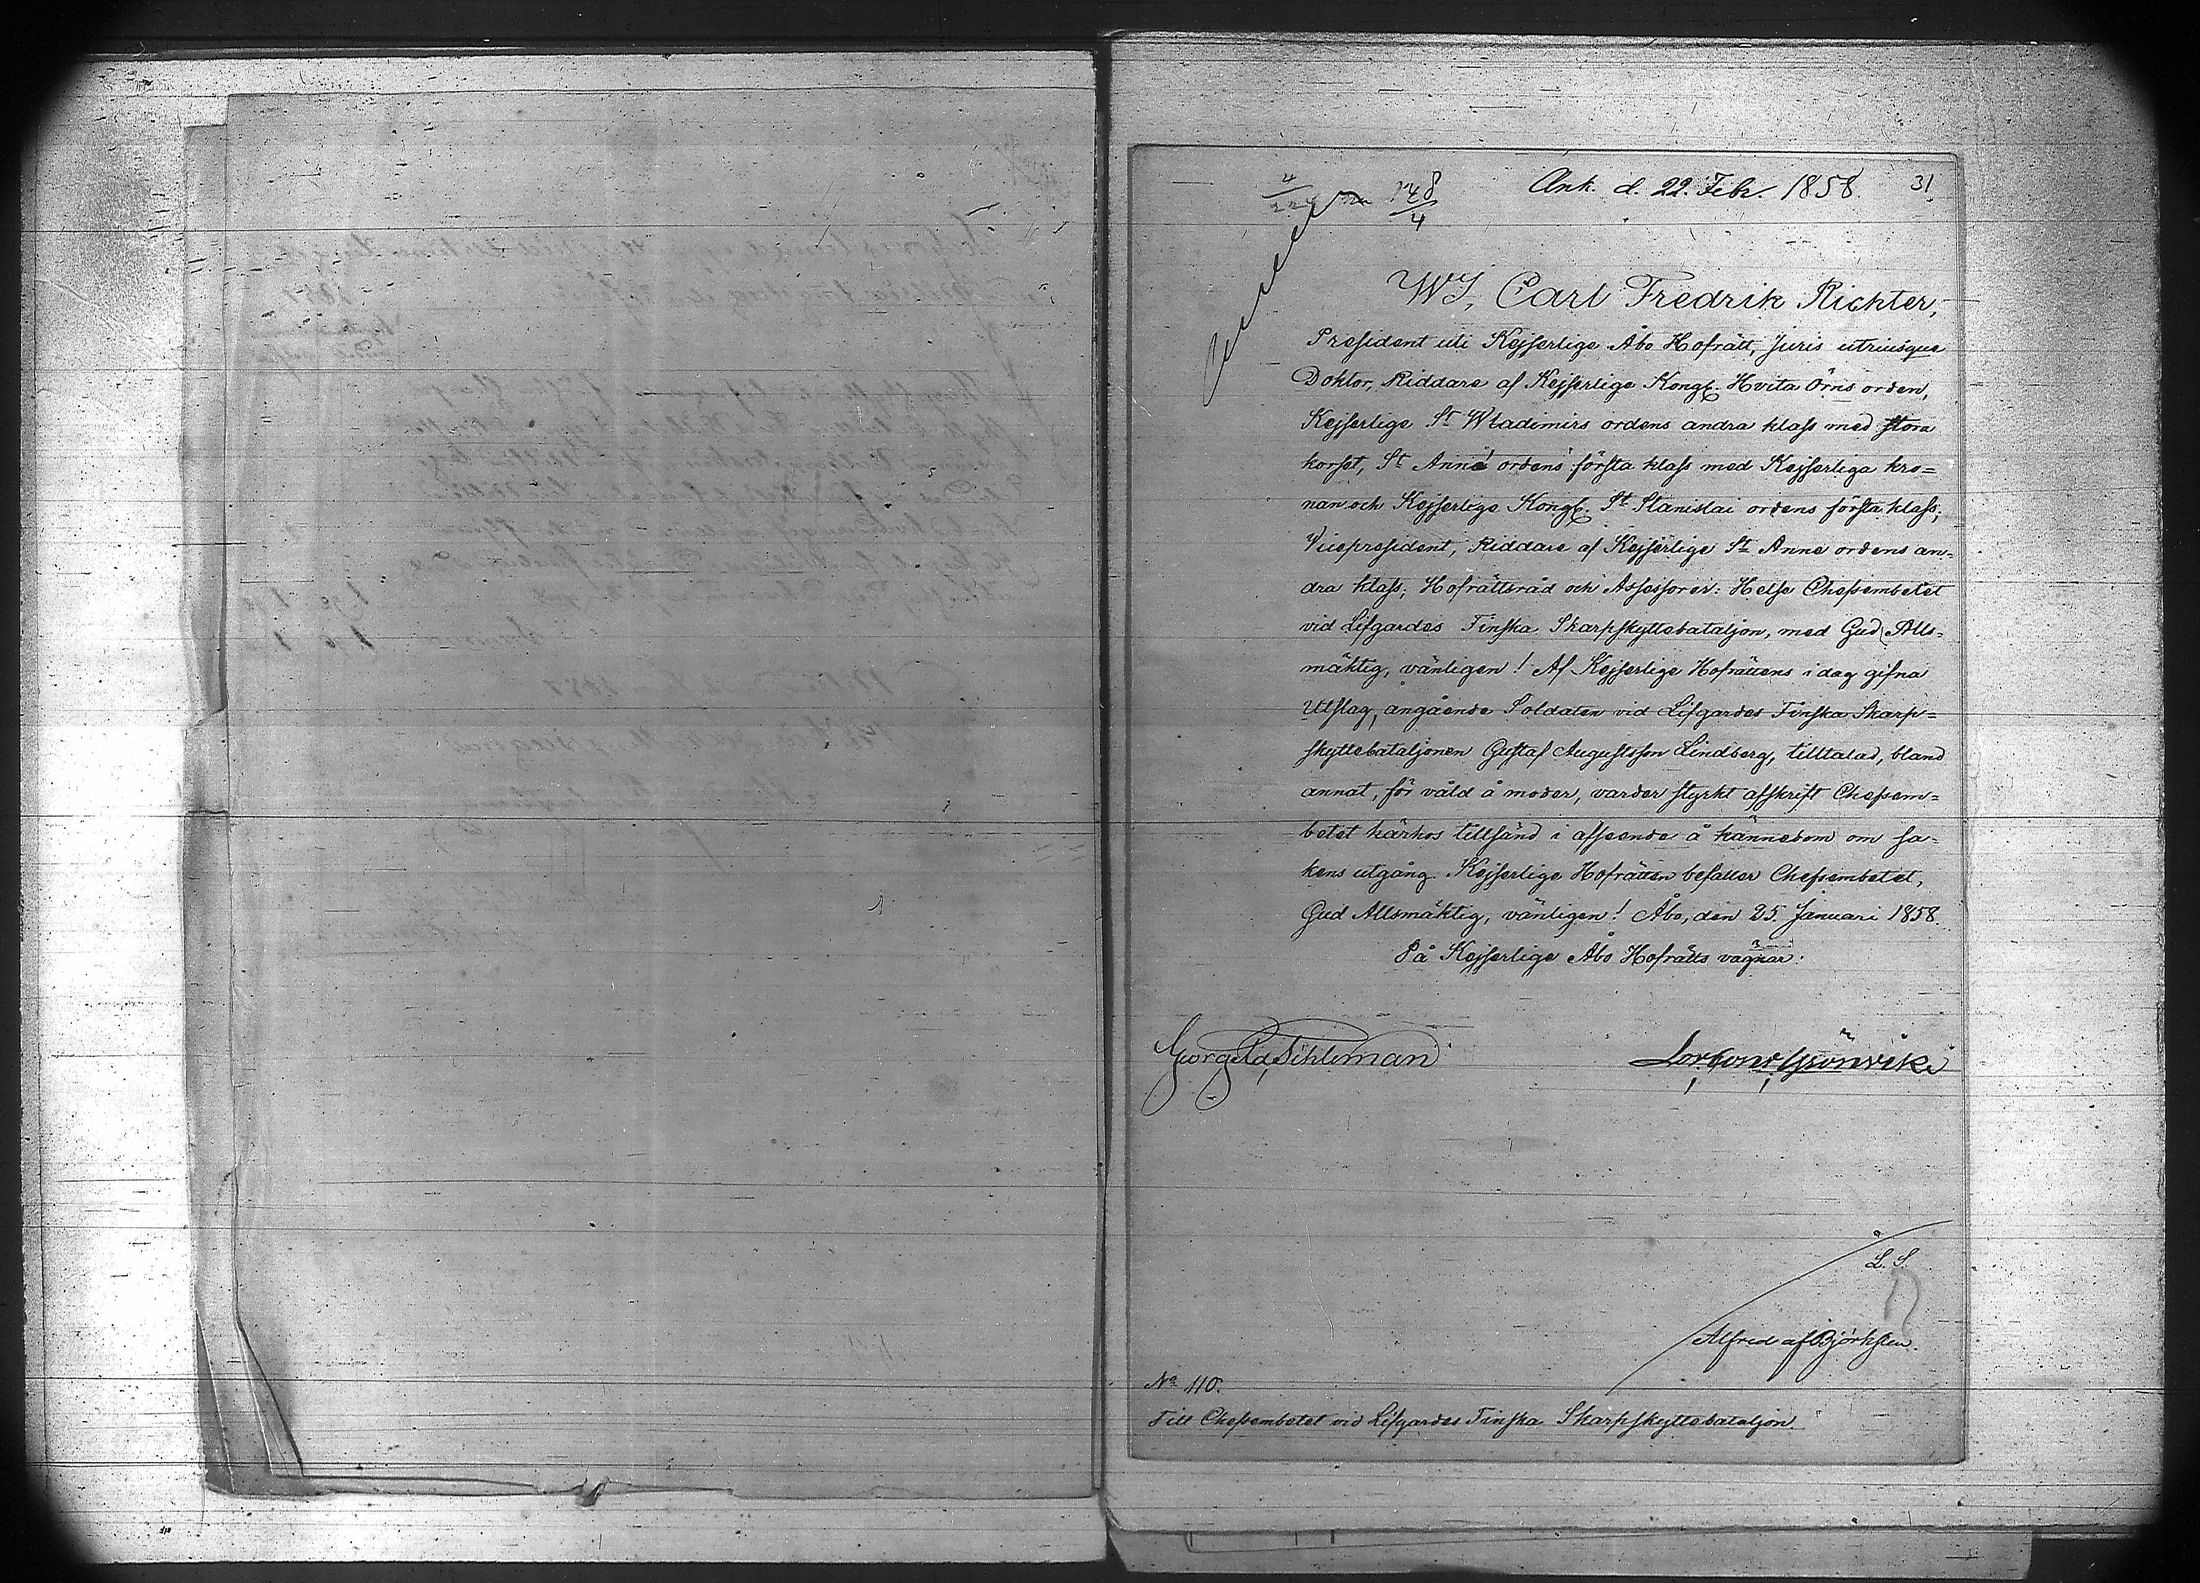 Ank. d. 22. Febr. 1858.
31
148
4
WJ, Carl Fredrik Richter,
President uti Kejserlige Åbo Hofrätt, Juris utriusque
Doktor, Riddare af Kejserlige Kongl. Hvita Örns orden,
Kejserlige St Wladimirs ordens andra klass med stora
korset, St Annæ ordens första klass med Kejserliga kro=
nan och Kejserlige Kongl. St Stanislai ordens första klass;
Vicepresident, Riddare af Kejserlige St Annæ ordens an=
dra klass; Hofrättsråd och Assessorer: Helse Chefsembetet
vid Lifgardes Finska Skarpskyttebataljon, med Gud Alls=
mäktig, vänligen! Af Kejserlige Hofrättens i dag gifna
Utslag, angående Soldaten vid Lifgardes Finska Skarp=
skyttebataljonen Gustaf Augustsson Lindberg, tilltalad, bland
annat, för våld å moder, varder styrkt afskrift Chefsem=
betet härhos tillsänd i afseende å kännedom om sa=
kens utgång. Kejserlige Hofrätten befaller Chefsembetet,
Gud Allsmäktig, vänligen! Åbo, den 25. Januari 1858.
På Kejserlige Åbo Hofrätts vägnar:
Idestam Grönvik
L. S.
Alfred af Björksten.
No 110.
Till Chefsembetet vid Lifgardes Finska Skarpskyttebataljon.